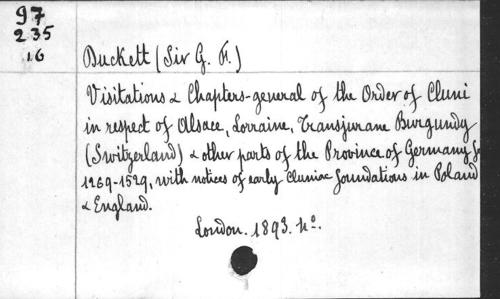 97
235
16
Duckett (Sir G. F.)
Visitations & Chapters-general of the Order of Cluni
in respect of Alsace, Lorraine, Transjurane Burgundy
(Switzerland) & other parts of the Province of Germany
1269-1529, with notices of early Cluniac foundations in Poland
& England.
London. 1893. 4o.